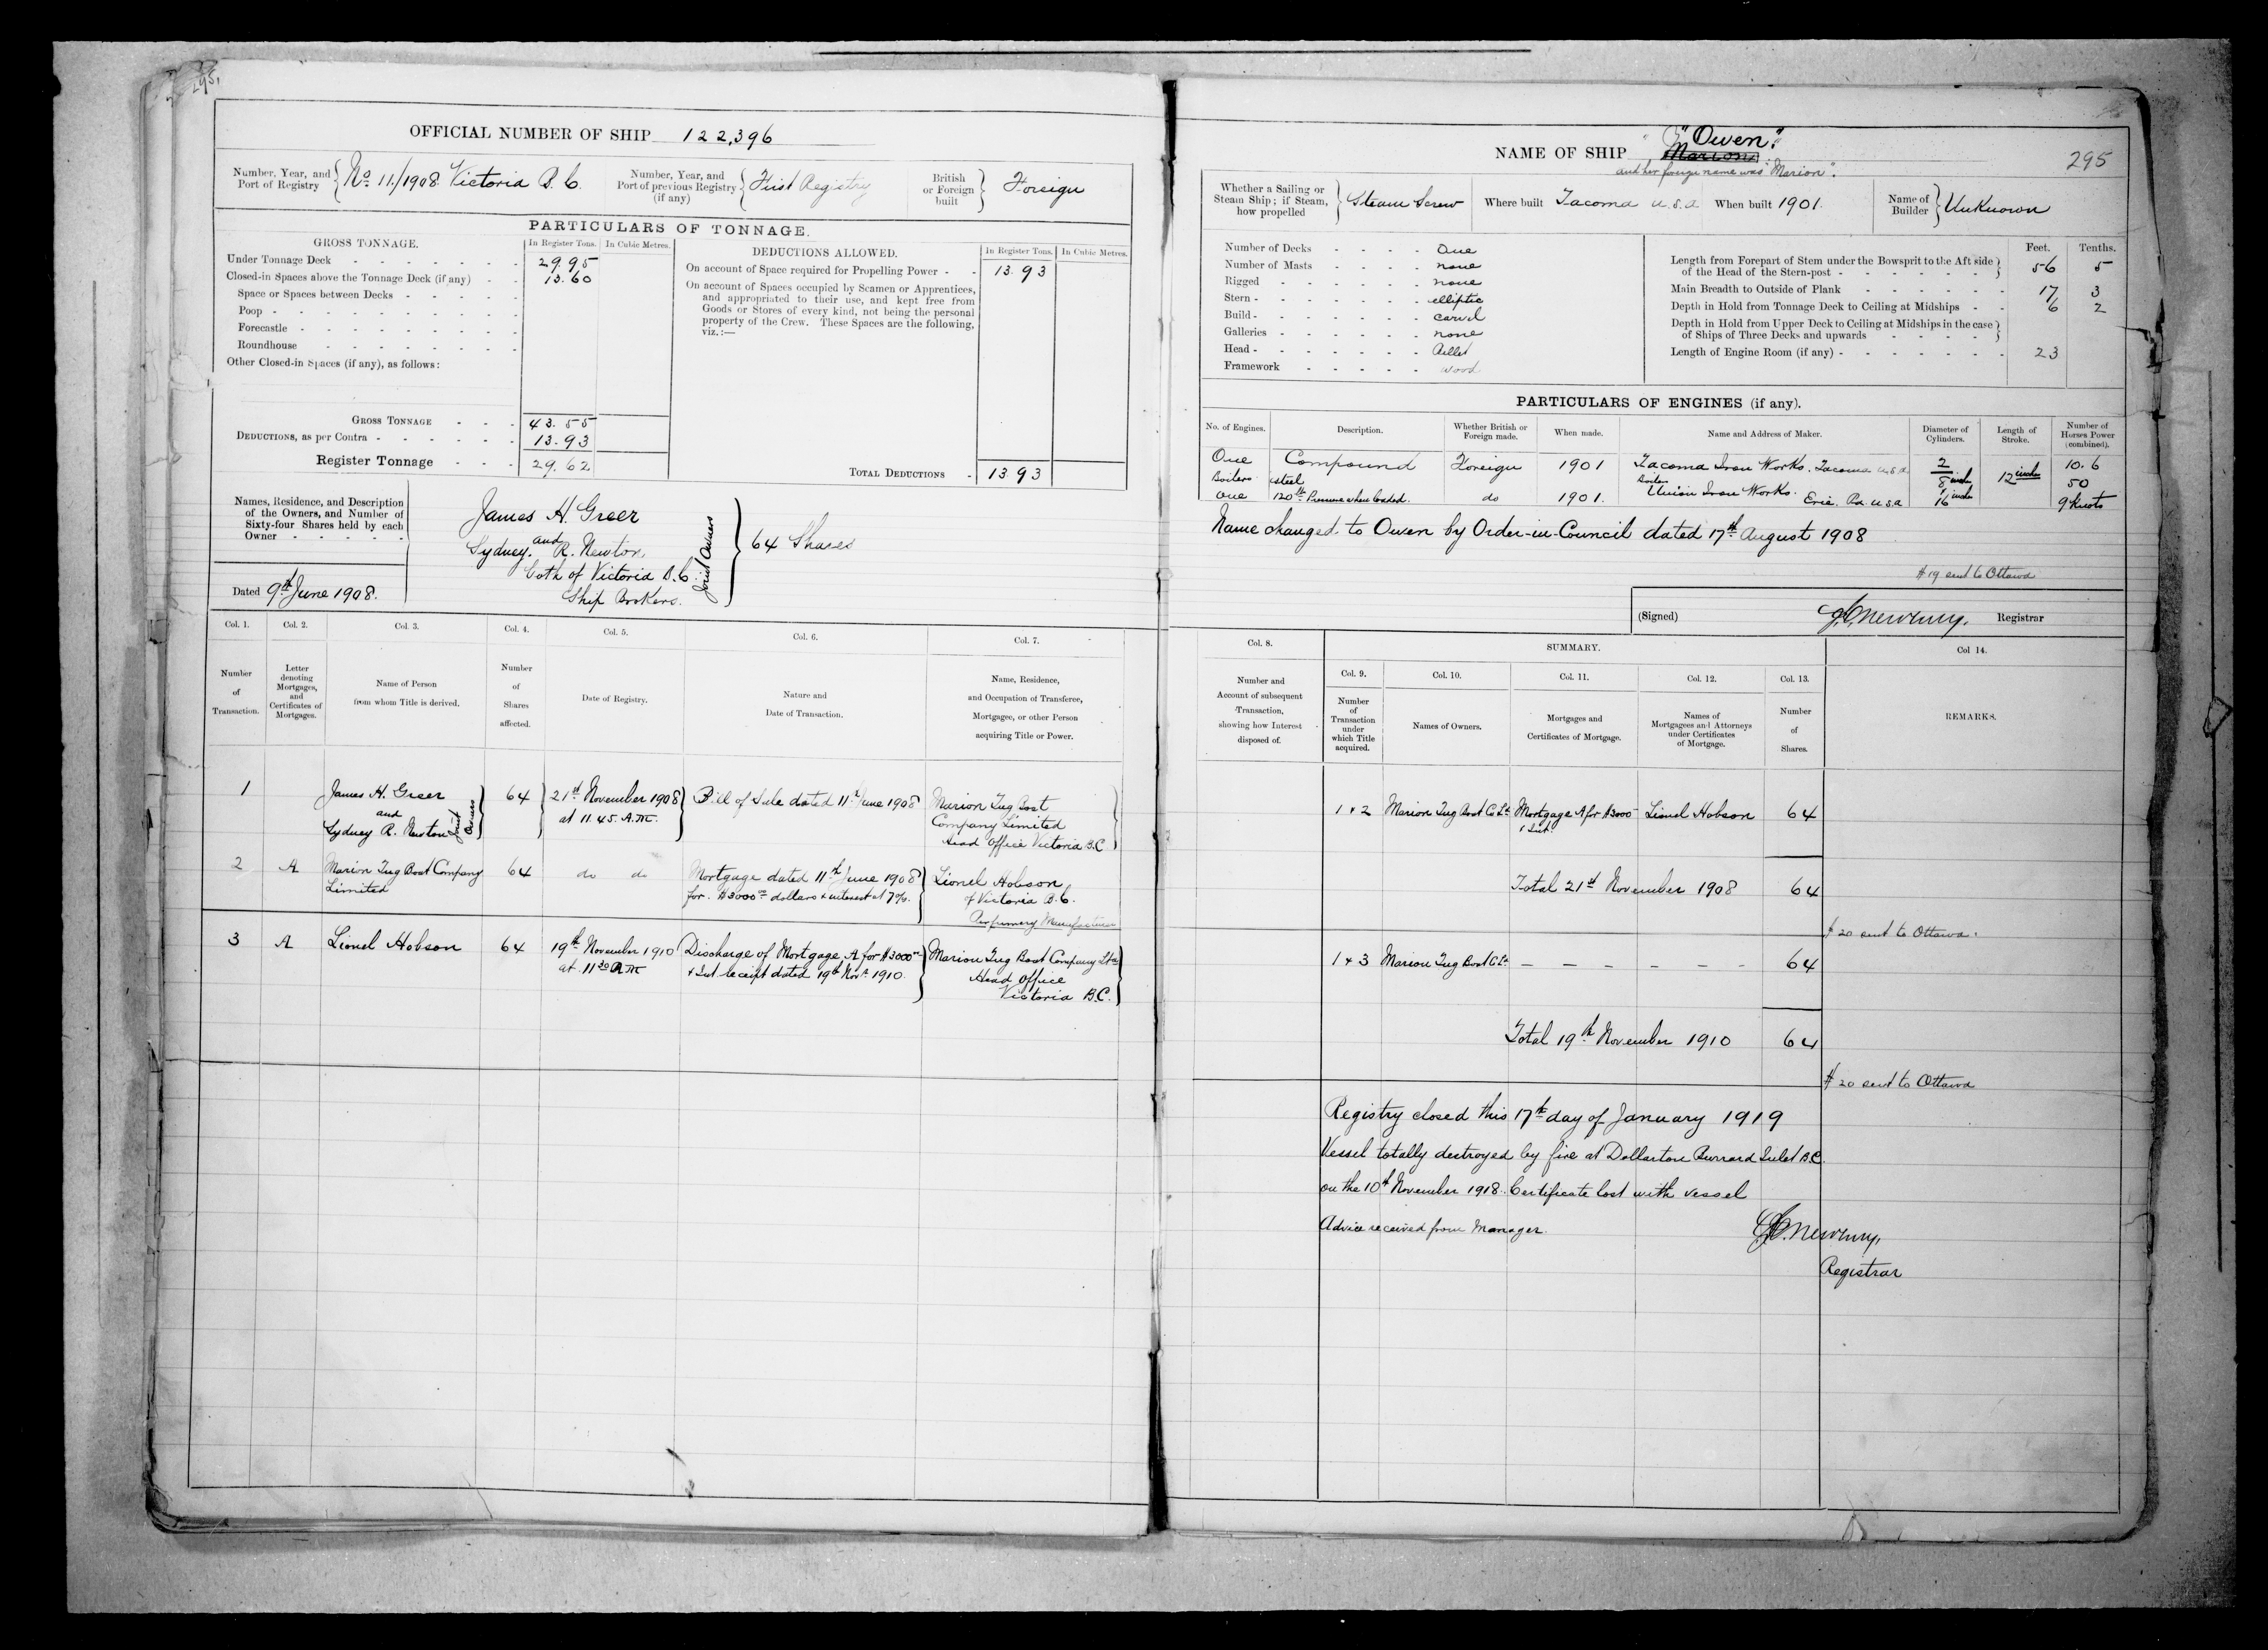 295.
OFFICIAL NUMBER OF SHIP 122,396
Number, Year, and Port of Registry } No 11./1908. Victoria B.C.
Number, Year, and Port of previous Registry (if any) { First Registry
British or Foreign built } Foreign
PARTICULARS OF TONNAGE.
GROSS TONNAGE.
In Register Tons. In Cubic Metres.
Under Tonnage Deck 29.95
Closed-in Spaces above the Tonnage Deck (if any) 13.60
Space or Spaces between Decks
Poop
Forecastle
Roundhouse
Other Closed-in Spaces (if any), as follows:
GROSS TONNAGE 43.55
DEDUCTIONS, as per Contra 13.93
Register Tonnage 29.62
DEDUCTIONS ALLOWED.
In Register Tons. In Cubic Metres.
On account of Space required for Propelling Power 13.93
On account of Spaces occupied by Seamen or Apprentices,
and appropriated to their use, and kept free from
Goods or Stores of every kind, not being the personal
property of the Crew. These Spaces are the following,
viz.:—
TOTAL DEDUCTIONS 13.93
Names, Residence, and Description
of the Owners, and Number of
Sixty-four Shares held by each
Owner
James H. Greer
and
Sydney. R. Newton
both of Victoria B.C.
Ship Brokers.
Joint Owners
64 Shares
Dated 9th June 1908.
Col. 1. Col. 2. Col. 3. Col. 4. Col. 5. Col. 6. Col. 7.
Number of Transaction.
Letter denoting Mortgages, and Certificates of Mortgages.
Name of Person from whom Title is derived.
Number of Shares affected.
Date of Registry.
Nature and Date of Transaction.
Name, Residence, and Occupation of Transferee, Mortgagee, or other Person acquiring Title or Power.
1 James H. Greer and Sydney R. Newton Joint Owners 64 21st November 1908 at 11.45. A.M. Bill of Sale dated 11th June 1908 Marion Tug Boat Company Limited Head Office Victoria B.C
2 A Marion Tug Boat Company Limited 64 do do Mortgage dated 11th June 1908 for. $3000.00 dollars & interest at 7%. Lionel Hobson of Victoria B.C. Perfumery Manufacturer
3 A Lionel Hobson 64 19th November 1910 at 11.30 A.M Discharge of Mortgage A for $3000.00 & Int. receipt dated 19th Novr 1910. Marion Tug Boat Company Ltd Head Office Victoria B.C.
NAME OF SHIP "Owen".
Marion
and her foreign name was "Marion".
295
Whether a Sailing or Steam Ship; if Steam, how propelled } Steam Screw
Where built Tacoma U.S.A
When built 1901.
Name of Builder } Unknown
Number of Decks One
Number of Masts none
Rigged none
Stern elliptic
Build carvel
Galleries none
Head Billet
Framework wood
Feet. Tenths.
Length from Forepart of Stem under the Bowsprit to the Aft side of the Head of the Stern-post 56 5
Main Breadth to Outside of Plank 17 3
Depth in Hold from Tonnage Deck to Ceiling at Midships 6 2
Depth in Hold from Upper Deck to Ceiling at Midships in the case of Ships of Three Decks and upwards
Length of Engine Room (if any) 23
PARTICULARS OF ENGINES (if any).
No. of Engines. Description. Whether British or Foreign made. When made. Name and Address of Maker. Diameter of Cylinders. Length of Stroke. Number of Horses Power (combined).
One Compound Foreign 1901 Tacoma Iron Works. Tacoma U.S.A 2 10.6
Boilers steel Boiler 8 inch 12 inches 50
One 120 lb Pressure when loaded. do 1901. Union Iron Works. Erie. Pa. U.S.A 16 inch 9 Knots
Name changed to Owen by Order-in-Council dated 17th August 1908
# 19 sent to Ottawa
(Signed) Registrar
Col. 8. SUMMARY. Col 14.
Col. 9. Col. 10. Col. 11. Col. 12. Col. 13.
Number and Account of subsequent Transaction, showing how Interest disposed of.
Number of Transaction under which Title acquired.
Names of Owners.
Mortgages and Certificates of Mortgage.
Names of Mortgagees and Attorneys under Certificates of Mortgage.
Number of Shares.
REMARKS.
1 & 2 Marion Tug Boat Co Ltd Mortgage A for $3000 & Int. Lionel Hobson 64
Total 21st November 1908 64
# 20 sent to Ottawa.
1 & 3 Marion Tug Boat Co Ltd — — — — — — 64
Total 19th November 1910 64
# 20 sent to Ottawa
Registry closed this 17th day of January 1919
Vessel totally destroyed by fire at Dollarton Burrard Inlet B.C
on the 10th November 1918. Certificate lost with vessel
Advice received from Manager.
Registrar